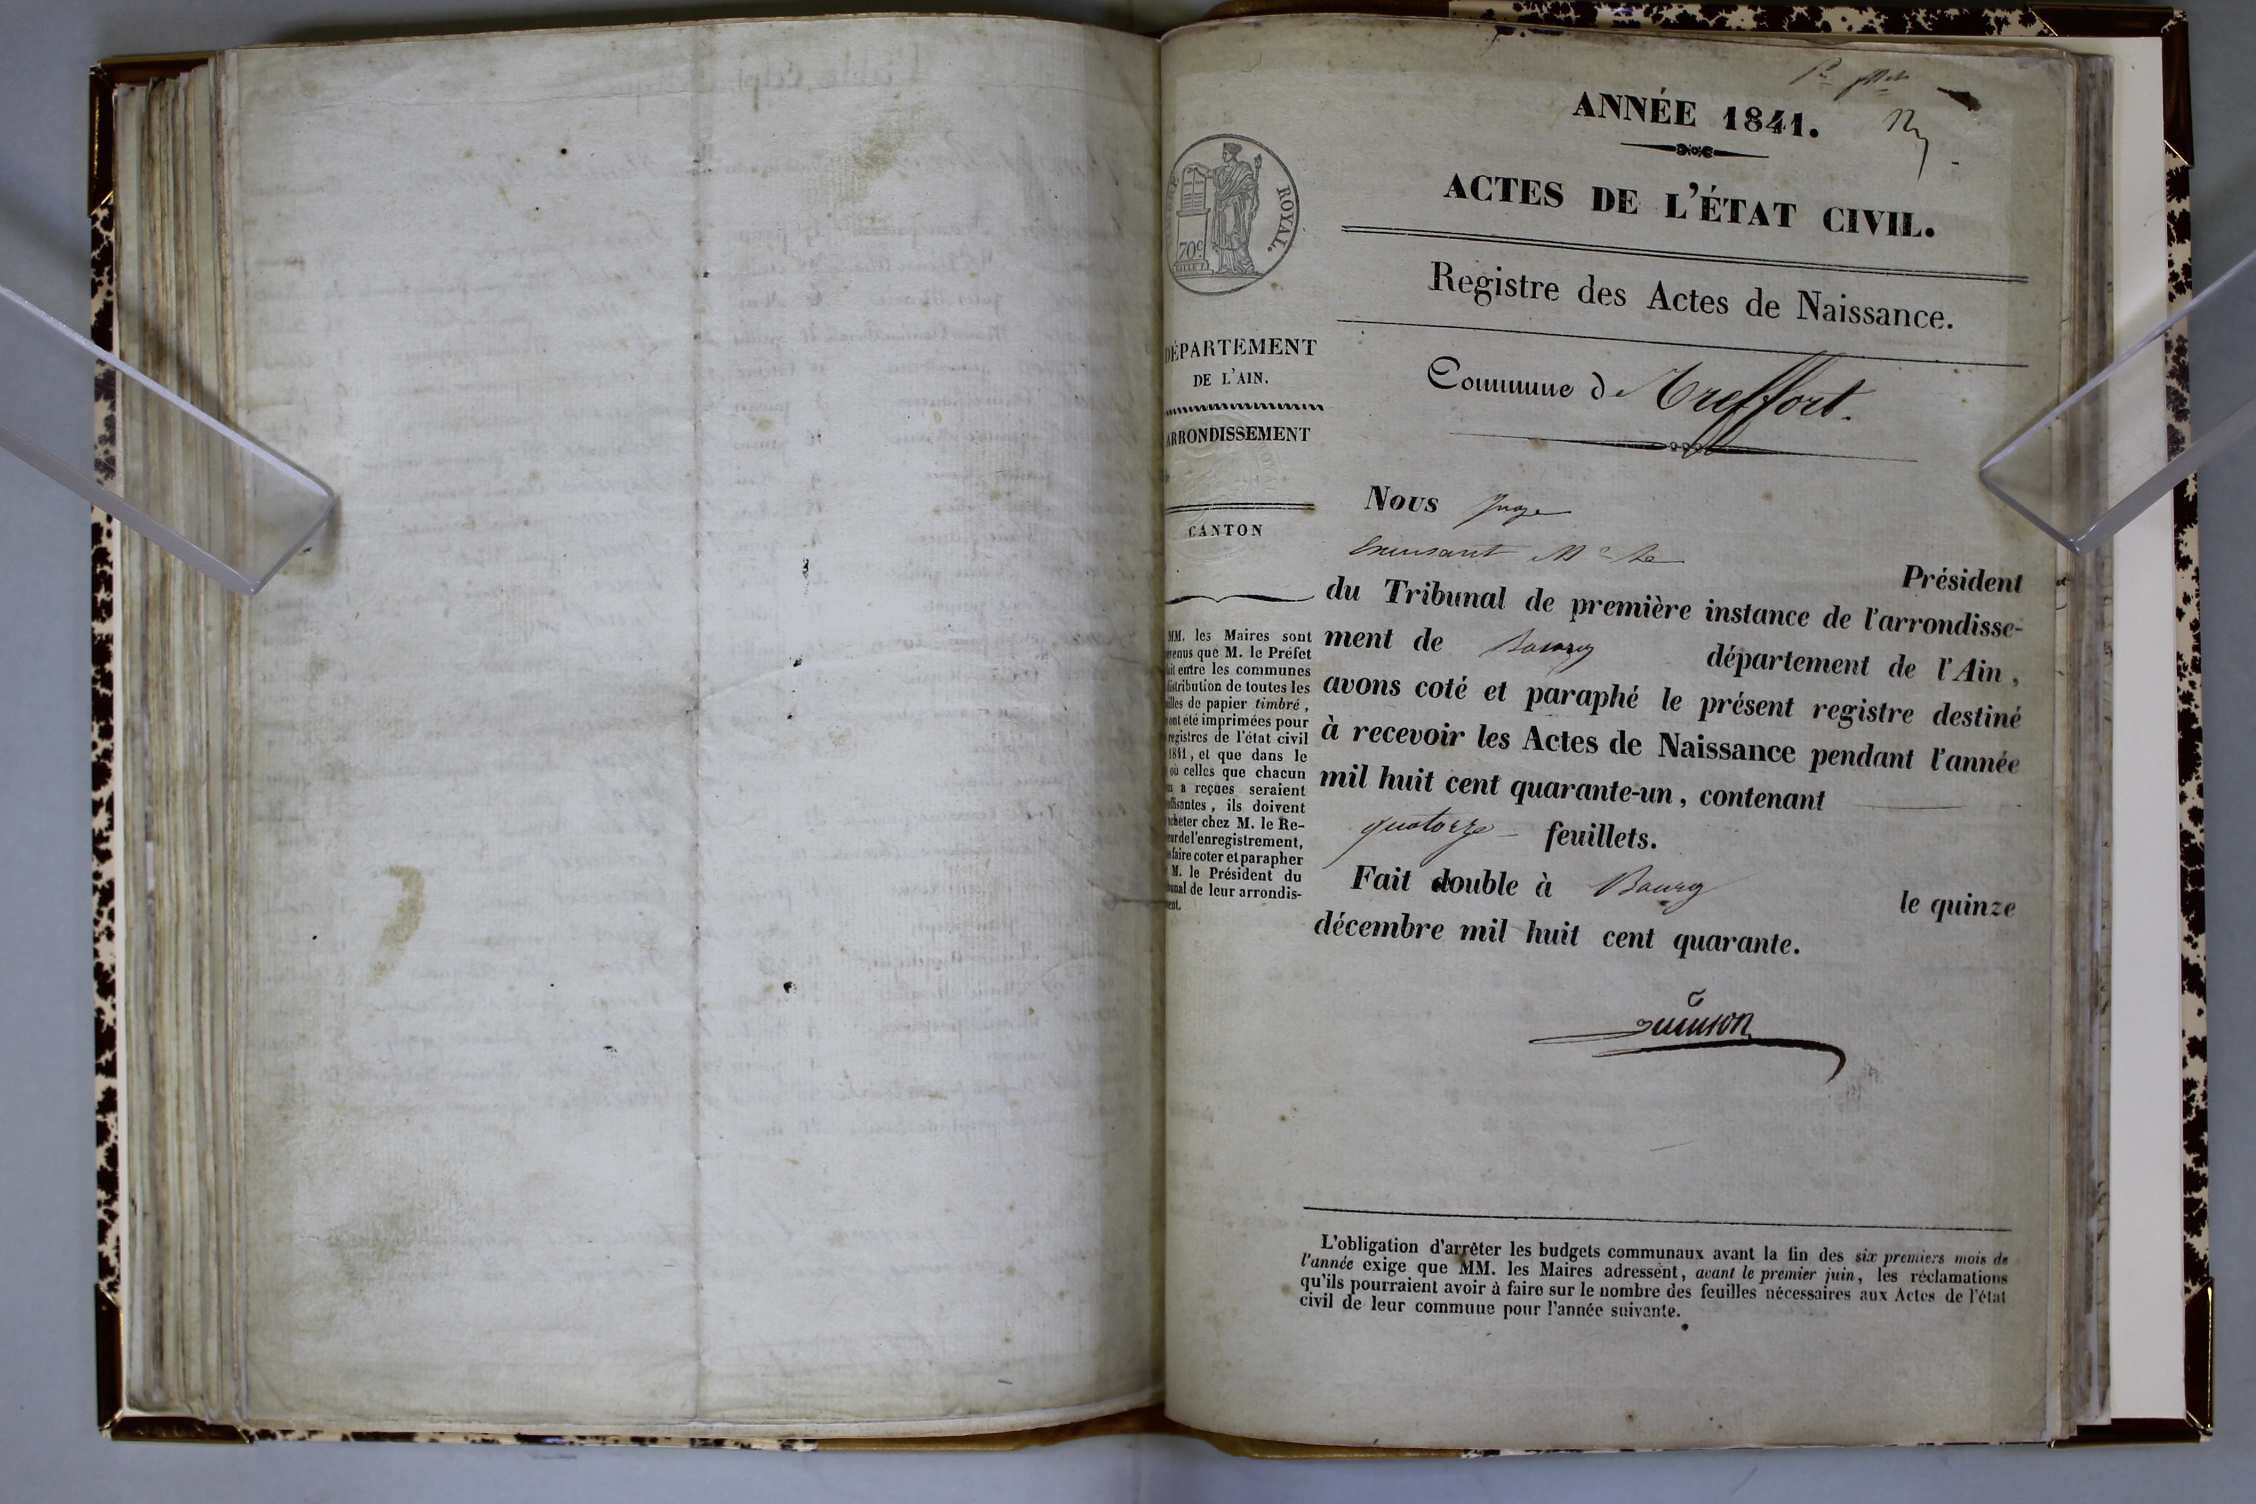 ANNÉE 1841.
ACTES DE L'ÉTAT CIVIL.
ROYAL.
70c
Registre des Actes de Naissance.
DÉPARTEMENT
DE L'AIN.
ARRONDISSEMENT
CANTON
Commune de Treffort.
Nous Juge
Président
du Tribunal de première instance de l'arrondisse-
ment de Bourg département de l'Ain,
avons coté et paraphé le présent registre destiné
à recevoir les Actes de Naissance pendant l'année
mil huit cent quarante-un, contenant
quatorze feuillets.
Fait double à Bourg le quinze
décembre mil huit cent quarante.
MM. les Maires sont
venus que M. le Préfet
ait entre les communes
distribution de toutes les
illes de papier timbré,
ont été imprimées pour
registres de l'état civil
1841, et que dans le
où celles que chacun
a reçues seraient
ffisantes, ils doivent
acheter chez M. le Re-
eur de l'enregistrement,
faire coter et parapher
M. le Président du
unal de leur arrondis-
ent.
L'obligation d'arrêter les budgets communaux avant la fin des six premiers mois de
l'année exige que MM. les Maires adressent, avant le premier juin, les réclamations
qu'ils pourraient avoir à faire sur le nombre des feuilles nécessaires aux Actes de l'état
civil de leur commune pour l'année suivante.